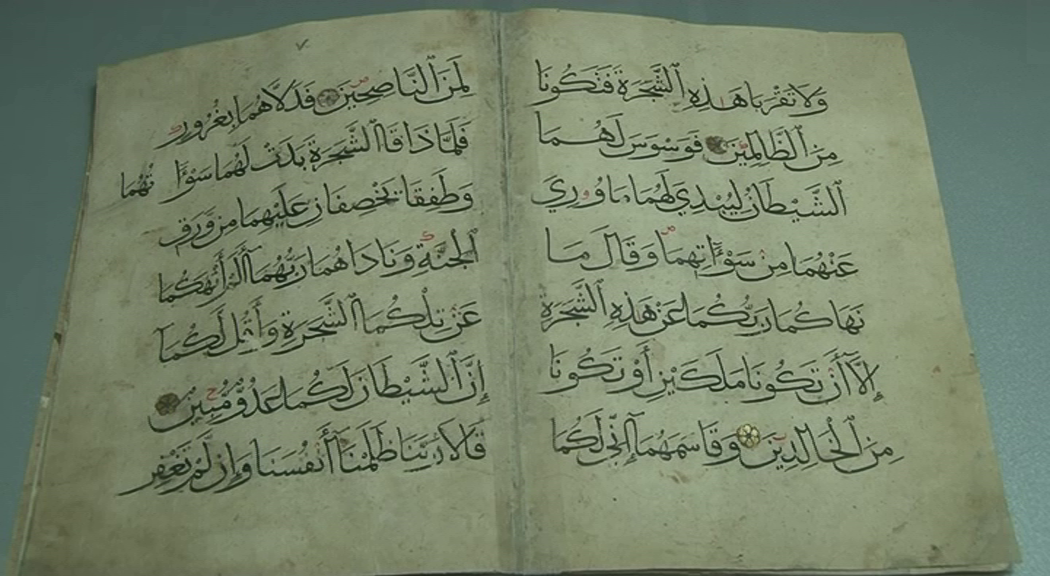 وَلَا تَقْرَبَا هَذِهِ الشَّجَرَةَ فَتَكُونَا
مِنَ الظَّالِمِينَ فَوَسْوَسَ لَهُمَا
الشَّيْطَانُ لِيُبْدِيَ لَهُمَا مَا وُورِيَ
عَنْهُمَا مِن سَوْءَاتِهِمَا وَقَالَ مَا
نَهَاكُمَا رَبُّكُمَا عَنْ هَذِهِ الشَّجَرَةِ
إِلَّا أَنْ تَكُونَا مَلَكَيْنِ أَوْ تَكُونَا
مِنَ الْخَالِدِينَ وَقَاسَمَهُمَا إِنِّي لَكُمَا
٧
لَمِنَ النَّاصِحِينَ فَدَلَّاهُمَا بِغُرُورٍ
فَلَمَّا ذَاقَا الشَّجَرَةَ بَدَتْ لَهُمَا سَوْءَاتُهُمَا
وَطَفِقَا يَخْصِفَانِ عَلَيْهِمَا مِن وَرَقِ
الْجَنَّةِ وَنَادَاهُمَا رَبُّهُمَا أَلَمْ أَنْهَكُمَا
عَنْ تِلْكُمَا الشَّجَرَةِ وَأَقُل لَكُمَا
إِنَّ الشَّيْطَانَ لَكُمَا عَدُوٌّ مُبِينٌ
قَالَا رَبَّنَا ظَلَمْنَا أَنفُسَنَا وَإِن لَمْ تَغْفِر